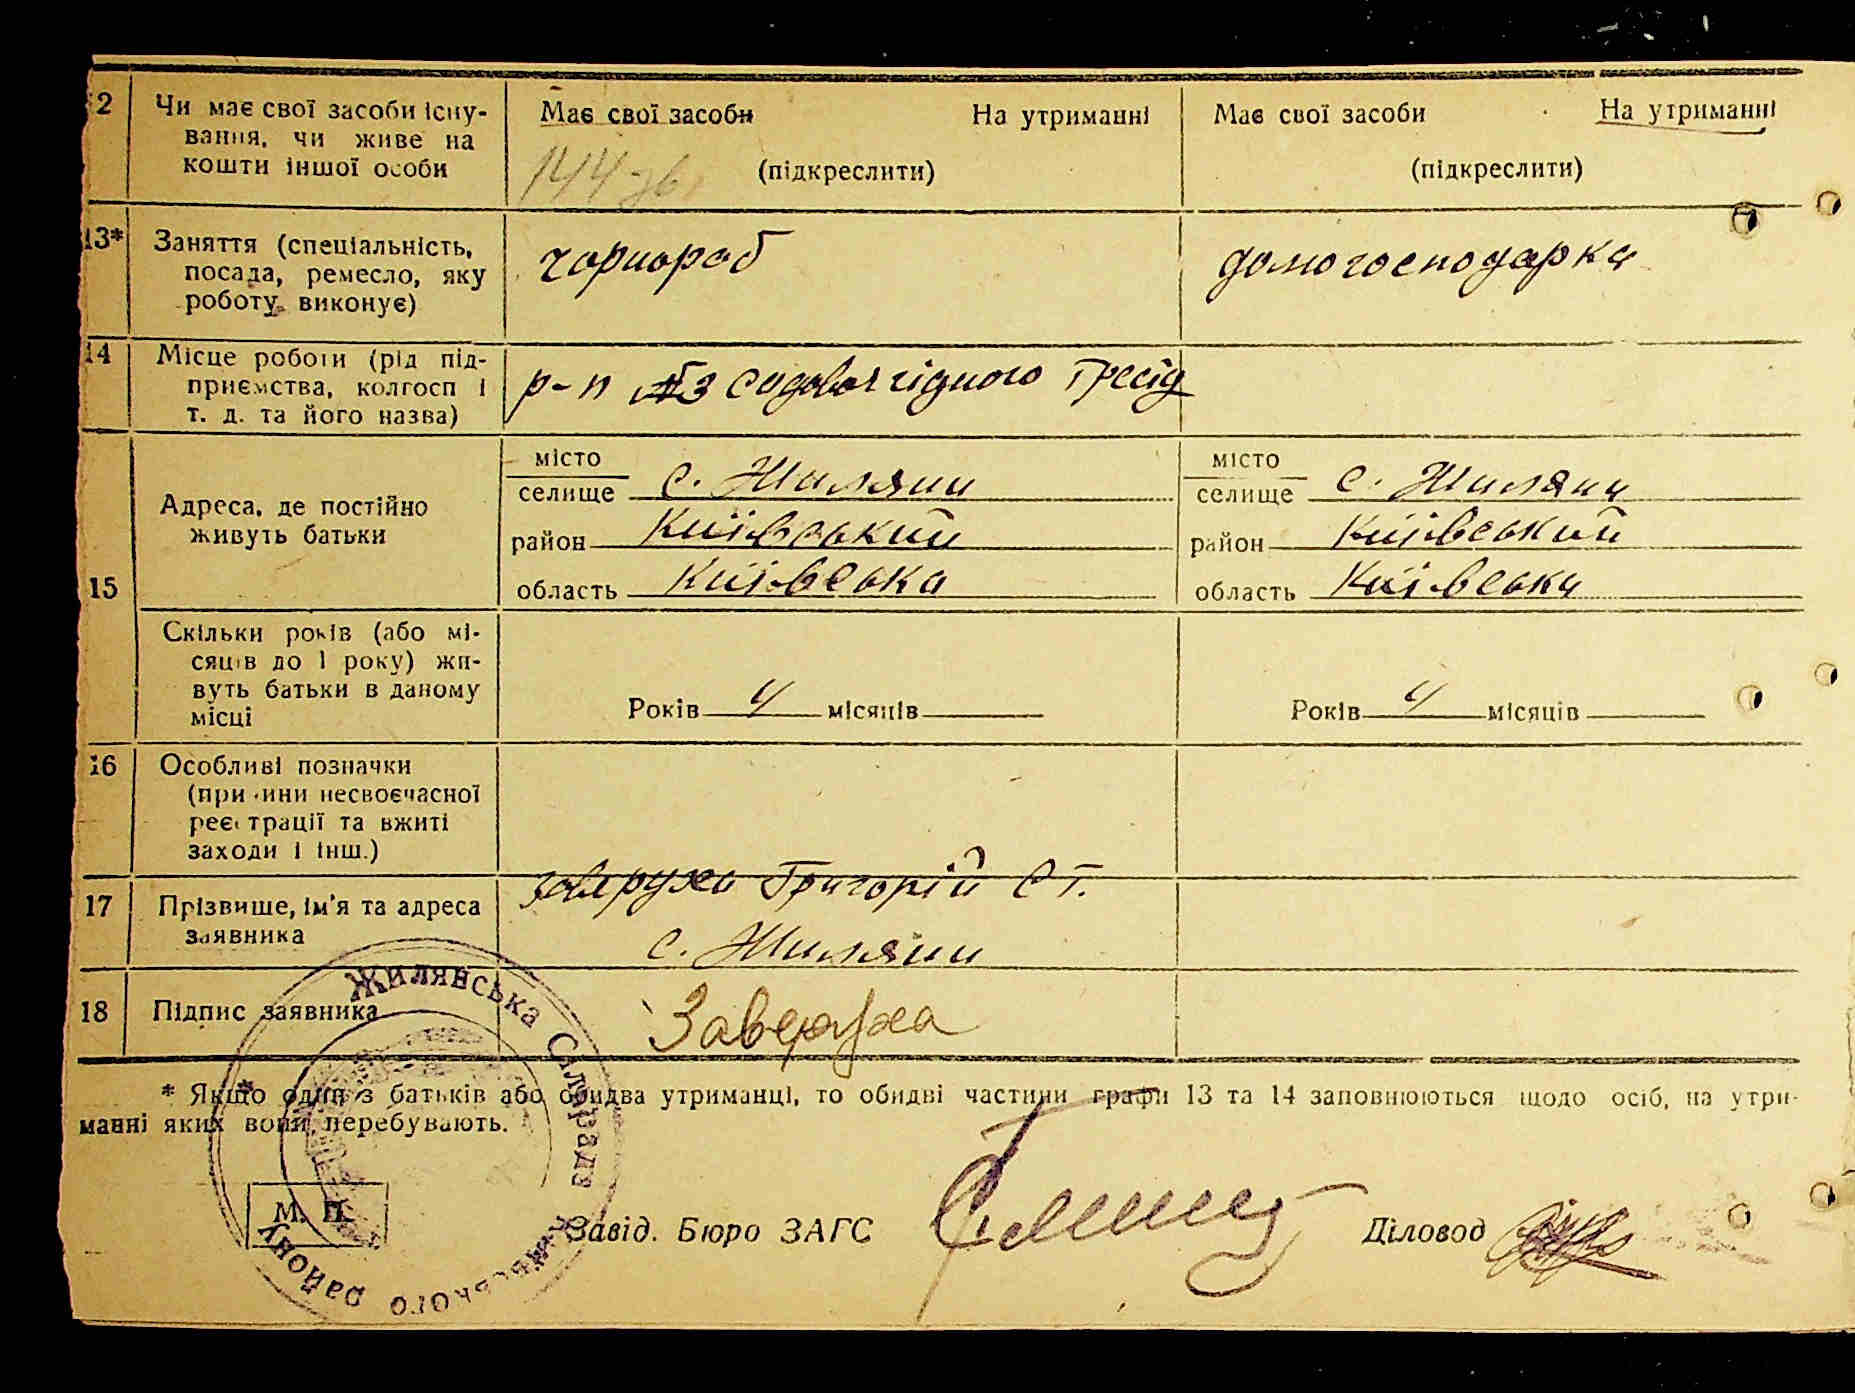 2 Чи має свої засоби існу-
вання, чи живе на
кошти іншої особи
Має свої засоби На утриманні
144
(підкреслити)
Має свої засоби На утриманні
(підкреслити)
13* Заняття (спеціальність,
посада, ремесло, яку
роботу виконує)
чорнороб
домогосподарка
14 Місце роботи (рід під-
приємства, колгосп і
т. д. та його назва)
р-п №3
15 Адреса, де постійно
живуть батьки
місто
селище с. Жиляни
район Київський
область Київська
місто
селище с. Жиляни
район Київський
область Київська
Скільки років (або мі-
сяців до 1 року) жи-
вуть батьки в даному
місці
Років 4 місяців
Років 4 місяців
16 Особливі позначки
(причини несвоєчасної
реєстрації та вжиті
заходи і інш.)
17 Прізвище, ім'я та адреса
заявника
Заверуха Григорій Ст.
с. Жиляни
18 Підпис заявника
Заверуха
* Якщо один з батьків або обидва утриманці, то обидві частини графи 13 та 14 заповнюються щодо осіб, на утри-
манні яких вони перебувають.
Жилянська Сілрада Київського району
М. П.
Завід. Бюро ЗАГС
Діловод